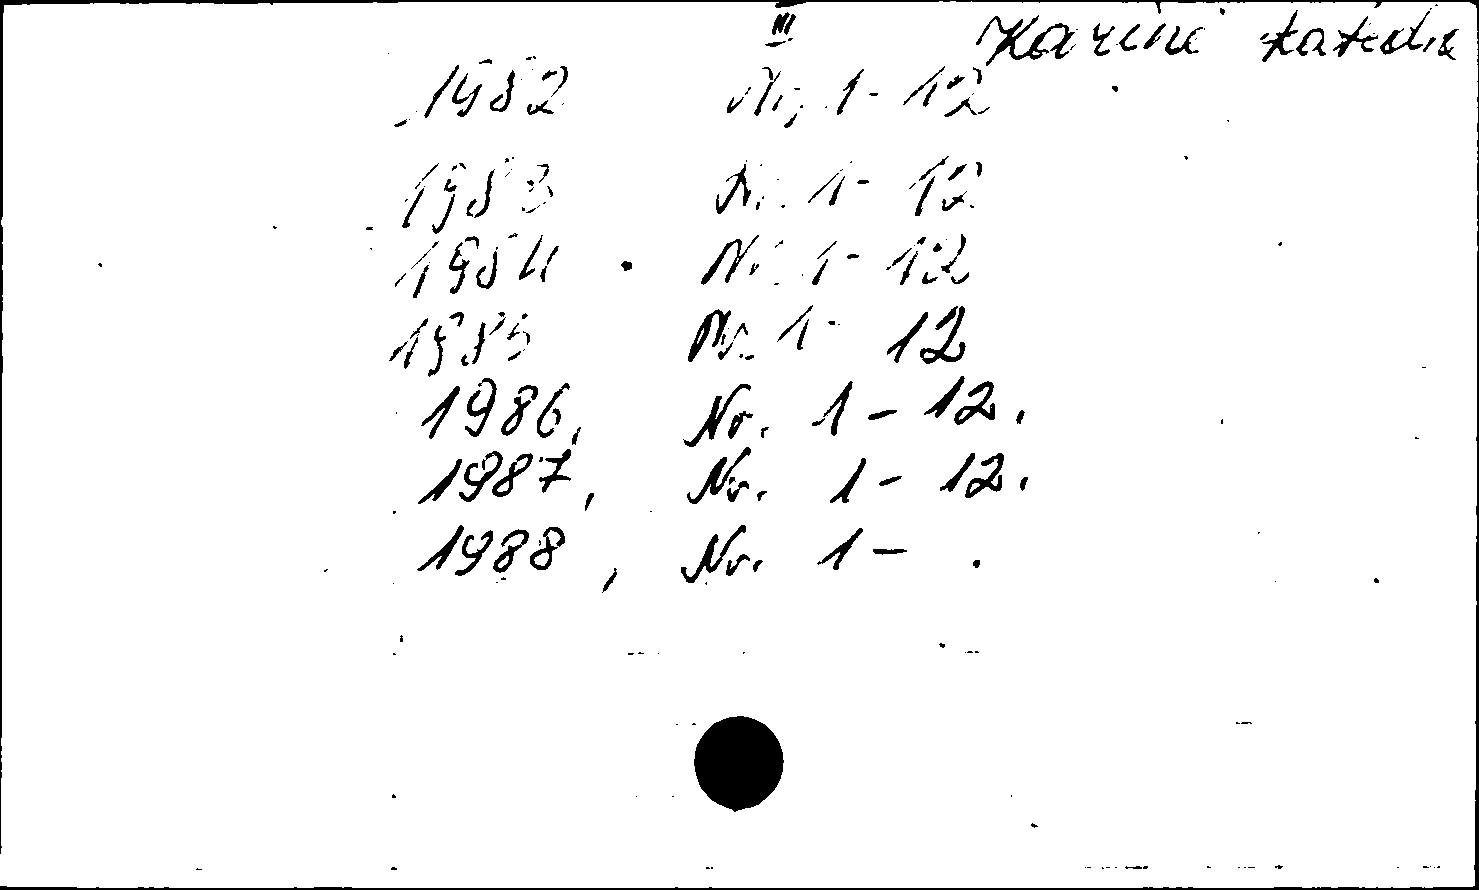 III Karinė katedra
1982 Nr. 1-12
1983 Nr. 1-12
1984 Nr. 1-12
1985 Nr. 1-12
1986, Nr. 1-12.
1987, Nr. 1-12.
1988, Nr. 1- .